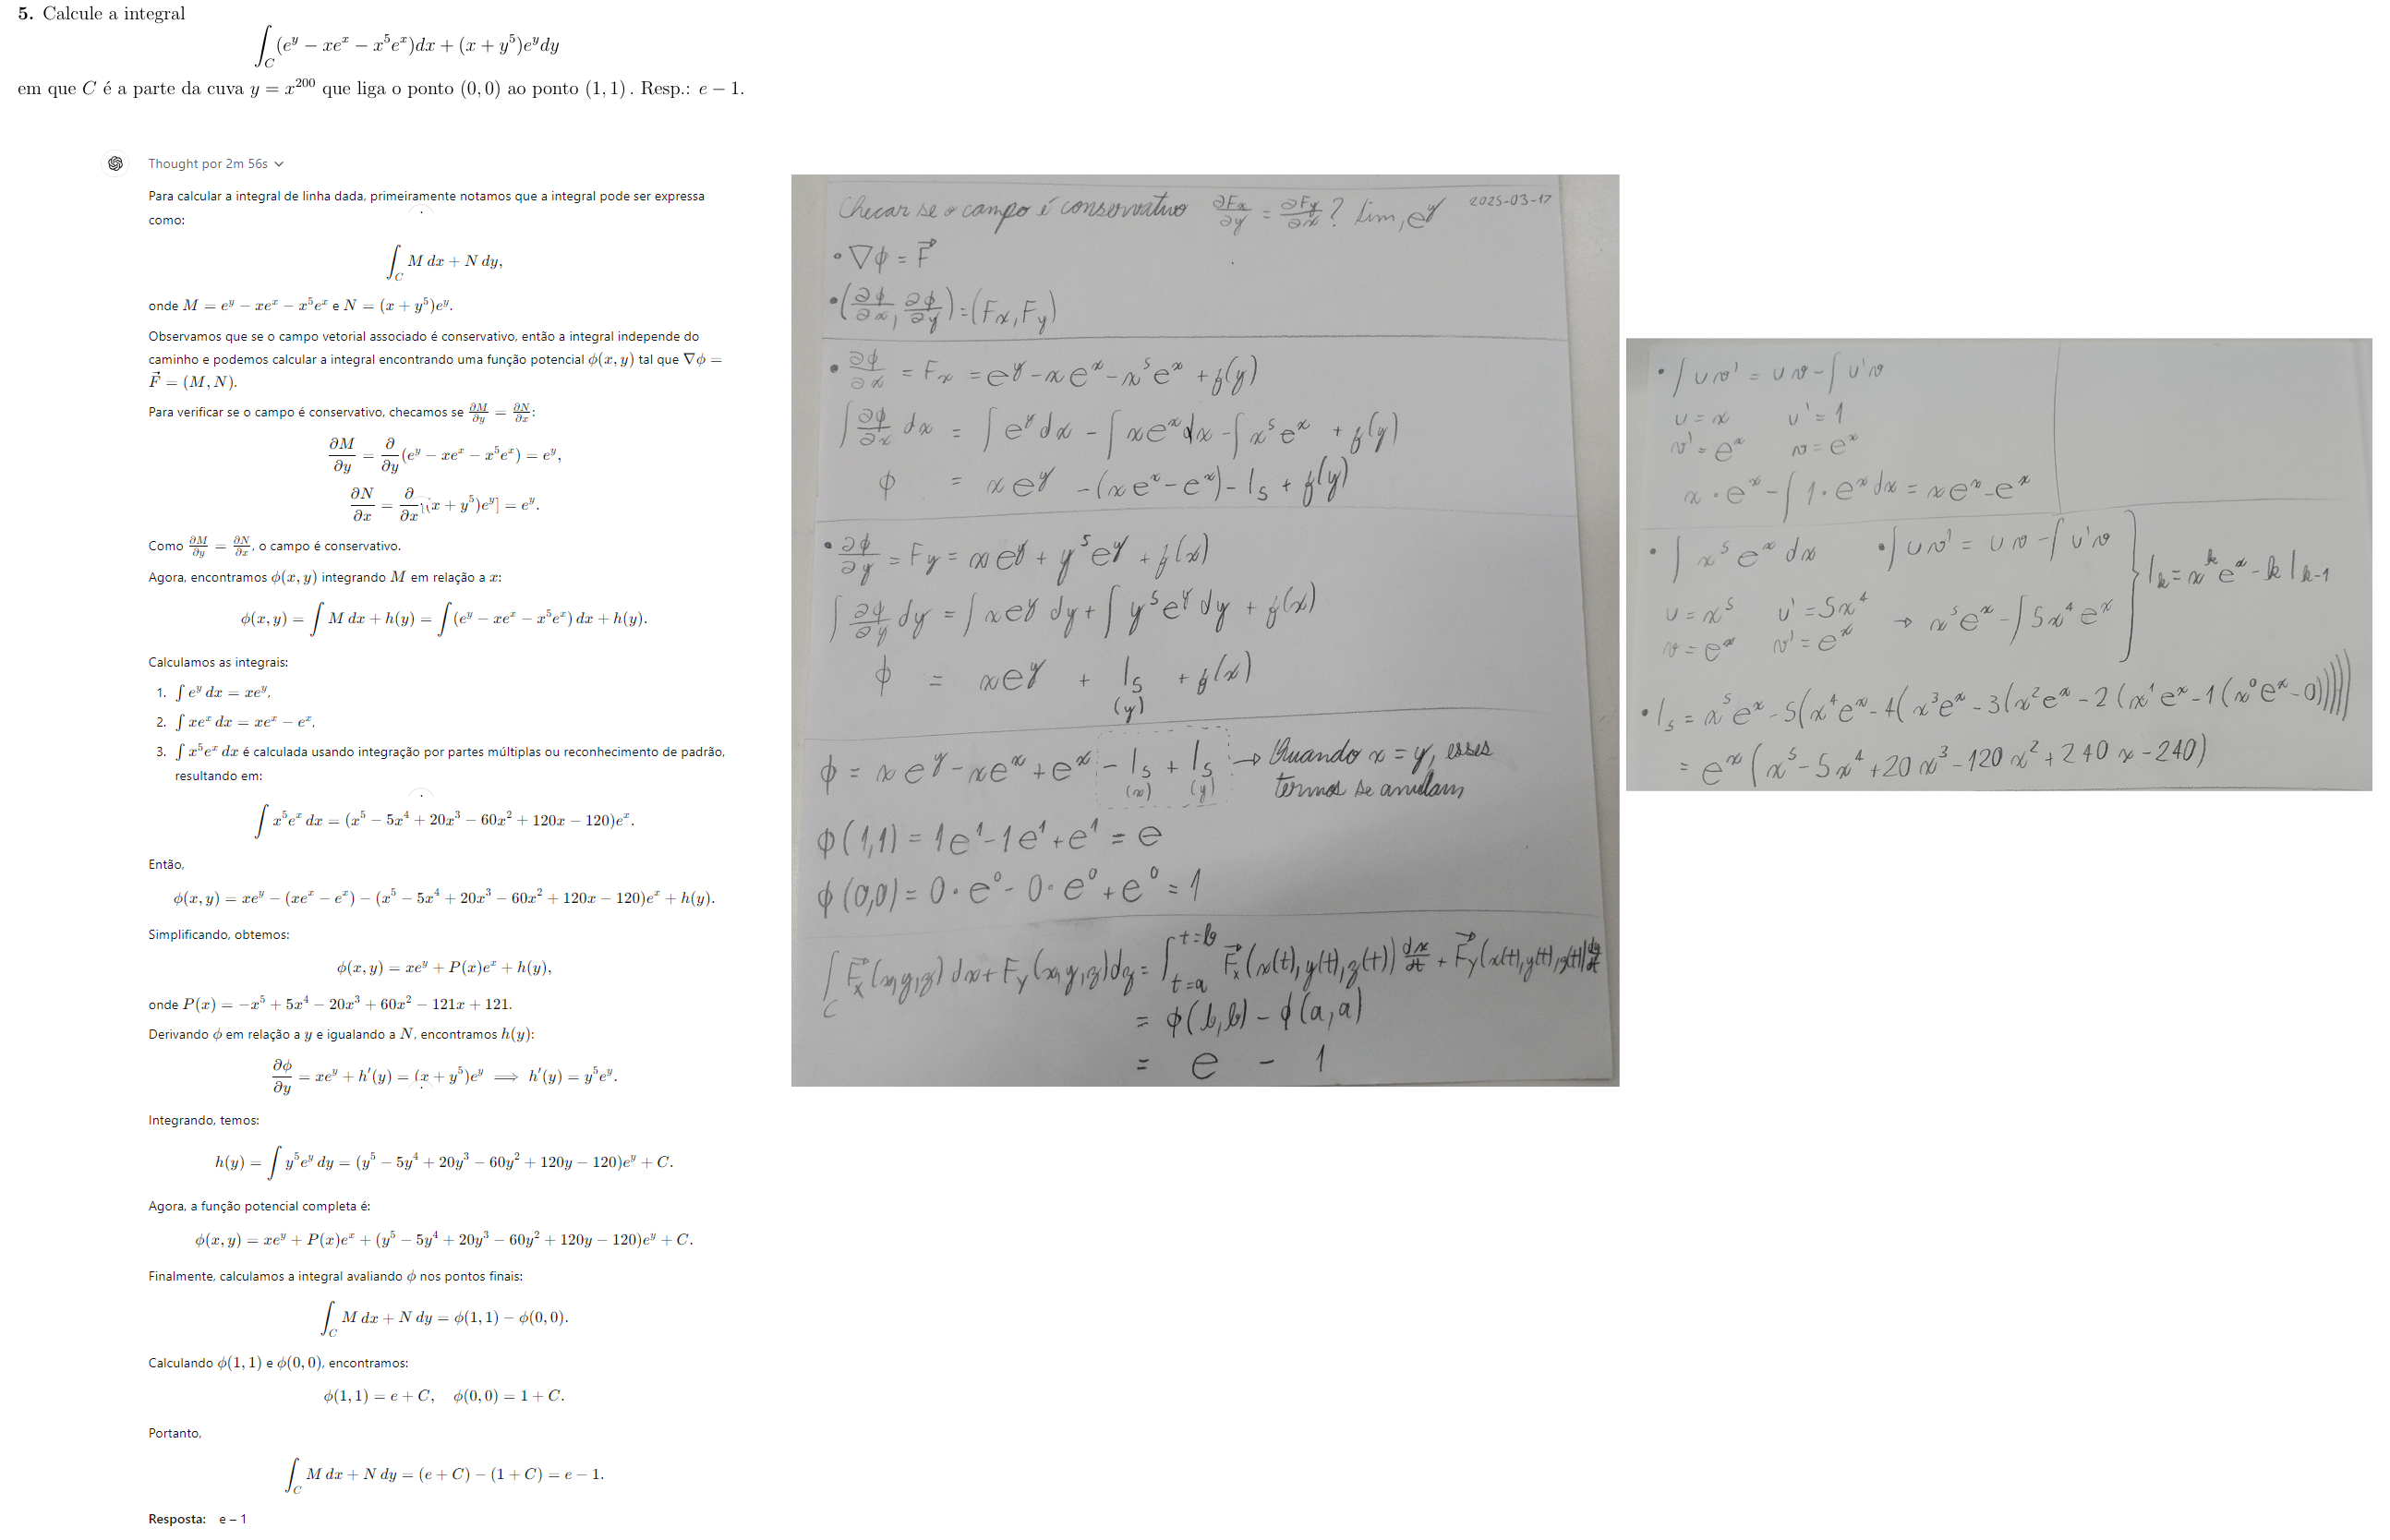 5. Calcule a integral
∫_C (e^y − xe^x − x^5e^x)dx + (x + y^5)e^ydy
em que C é a parte da cuva y = x^200 que liga o ponto (0, 0) ao ponto (1, 1) . Resp.: e − 1.
Thought por 2m 56s
Para calcular a integral de linha dada, primeiramente notamos que a integral pode ser expressa
como:
∫_C M dx + N dy,
onde M = e^y − xe^x − x^5e^x e N = (x + y^5)e^y.
Observamos que se o campo vetorial associado é conservativo, então a integral independe do
caminho e podemos calcular a integral encontrando uma função potencial ϕ(x, y) tal que ∇ϕ =
F⃗ = (M, N).
Para verificar se o campo é conservativo, checamos se ∂M/∂y = ∂N/∂x:
∂M/∂y = ∂/∂y (e^y − xe^x − x^5e^x) = e^y,
∂N/∂x = ∂/∂x [(x + y^5)e^y] = e^y.
Como ∂M/∂y = ∂N/∂x, o campo é conservativo.
Agora, encontramos ϕ(x, y) integrando M em relação a x:
ϕ(x, y) = ∫ M dx + h(y) = ∫ (e^y − xe^x − x^5e^x) dx + h(y).
Calculamos as integrais:
1. ∫ e^y dx = xe^y,
2. ∫ xe^x dx = xe^x − e^x,
3. ∫ x^5e^x dx é calculada usando integração por partes múltiplas ou reconhecimento de padrão,
resultando em:
∫ x^5e^x dx = (x^5 − 5x^4 + 20x^3 − 60x^2 + 120x − 120)e^x.
Então,
ϕ(x, y) = xe^y − (xe^x − e^x) − (x^5 − 5x^4 + 20x^3 − 60x^2 + 120x − 120)e^x + h(y).
Simplificando, obtemos:
ϕ(x, y) = xe^y + P(x)e^x + h(y),
onde P(x) = −x^5 + 5x^4 − 20x^3 + 60x^2 − 121x + 121.
Derivando ϕ em relação a y e igualando a N, encontramos h(y):
∂ϕ/∂y = xe^y + h′(y) = (x + y^5)e^y ⟹ h′(y) = y^5e^y.
Integrando, temos:
h(y) = ∫ y^5e^y dy = (y^5 − 5y^4 + 20y^3 − 60y^2 + 120y − 120)e^y + C.
Agora, a função potencial completa é:
ϕ(x, y) = xe^y + P(x)e^x + (y^5 − 5y^4 + 20y^3 − 60y^2 + 120y − 120)e^y + C.
Finalmente, calculamos a integral avaliando ϕ nos pontos finais:
∫_C M dx + N dy = ϕ(1, 1) − ϕ(0, 0).
Calculando ϕ(1, 1) e ϕ(0, 0), encontramos:
ϕ(1, 1) = e + C, ϕ(0, 0) = 1 + C.
Portanto,
∫_C M dx + N dy = (e + C) − (1 + C) = e − 1.
Resposta: e – 1
Checar se o campo é conservativo ∂Fx/∂y = ∂Fy/∂x ? Sim, e^y 2025-03-17
• ∇ϕ = F⃗
• (∂ϕ/∂x, ∂ϕ/∂y) = (Fx, Fy)
• ∂ϕ/∂x = Fx = e^y - xe^x - x^5e^x + f(y)
∫ ∂ϕ/∂x dx = ∫ e^y dx - ∫ xe^x dx - ∫ x^5e^x + f(y)
ϕ = xe^y - (xe^x - e^x) - I5 + f(y)
• ∂ϕ/∂y = Fy = xe^y + y^5e^y + f(x)
∫ ∂ϕ/∂y dy = ∫ xe^y dy + ∫ y^5e^y dy + f(x)
ϕ = xe^y + I5 + f(x)
(y)
ϕ = xe^y - xe^x + e^x - I5 + I5 → Quando x = y, esses
(x) (y) termos se anulam
ϕ(1,1) = 1e^1 - 1e^1 + e^1 = e
ϕ(0,0) = 0·e^0 - 0·e^0 + e^0 = 1
∫_C F⃗x(x,y,z)dx + Fy(x,y,z)dy = ∫_{t=a}^{t=b} F⃗x(x(t),y(t),z(t)) dx/dt + F⃗y(x(t),y(t),z(t)) dy/dt
= ϕ(b,b) - ϕ(a,a)
= e - 1
• ∫ uv' = uv - ∫ u'v
u = x u' = 1
v' = e^x v = e^x
x·e^x - ∫ 1·e^x dx = xe^x - e^x
• ∫ x^5 e^x dx • ∫ uv' = uv - ∫ u'v } Ik = x^k e^x - k Ik-1
u = x^5 u' = 5x^4
v = e^x v' = e^x → x^5e^x - ∫ 5x^4 e^x
• I5 = x^5e^x - 5(x^4e^x - 4(x^3e^x - 3(x^2e^x - 2(x^1e^x - 1(x^0e^x - 0)))))
= e^x (x^5 - 5x^4 + 20x^3 - 120x^2 + 240x - 240)